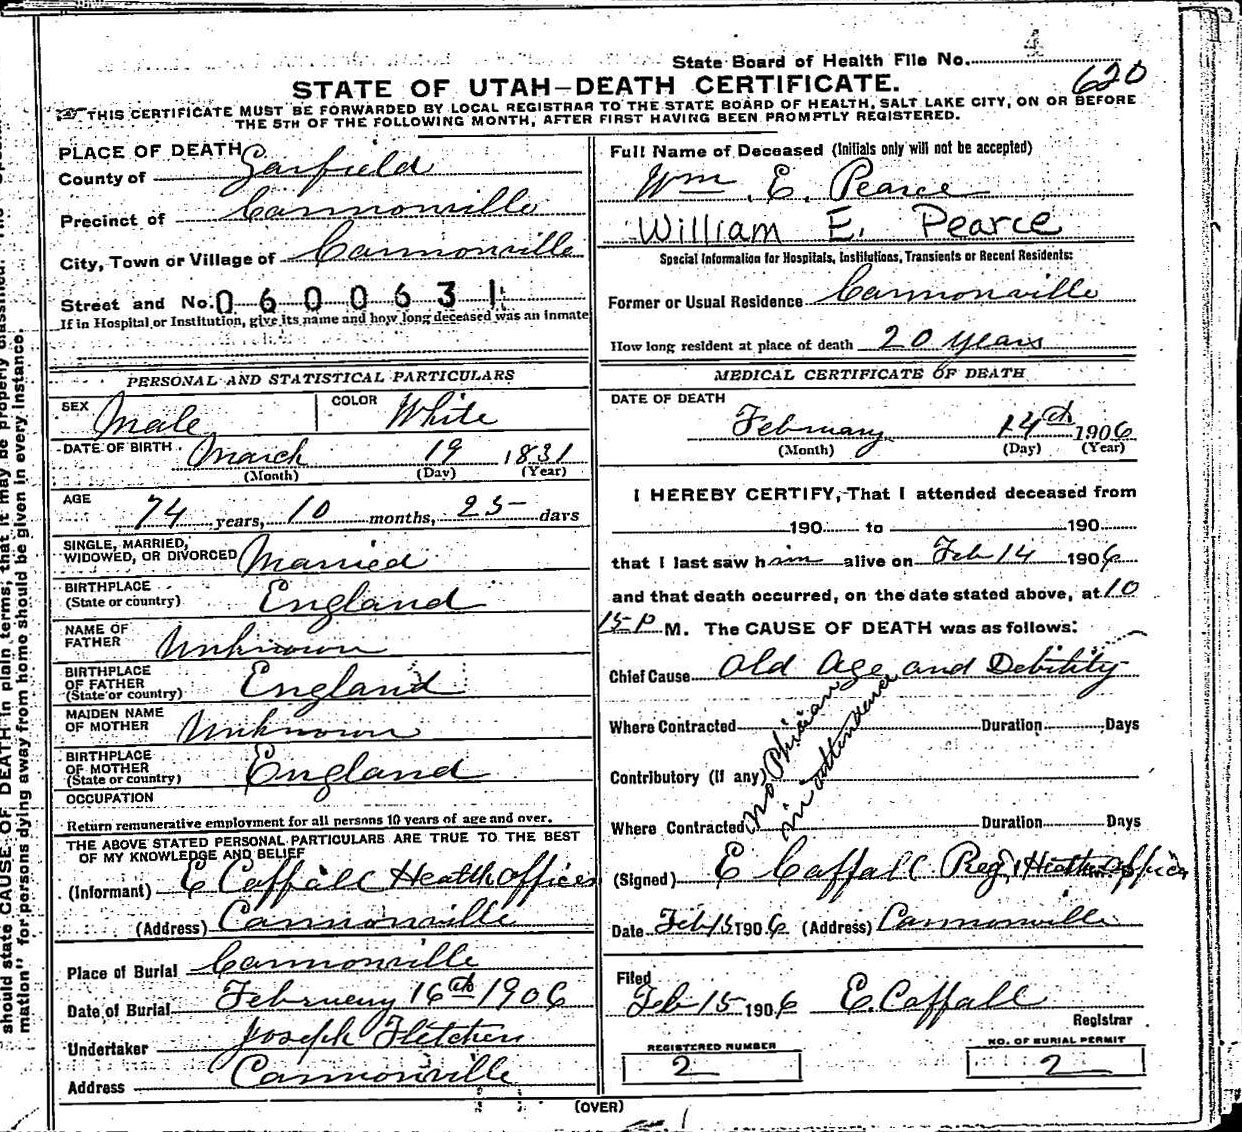 State Board of Health File No.
620
STATE OF UTAH—DEATH CERTIFICATE.
THIS CERTIFICATE MUST BE FORWARDED BY LOCAL REGISTRAR TO THE STATE BOARD OF HEALTH, SALT LAKE CITY, ON OR BEFORE
THE 5TH OF THE FOLLOWING MONTH, AFTER FIRST HAVING BEEN PROMPTLY REGISTERED.
PLACE OF DEATH
County of Garfield
Precinct of Cannonville
City, Town or Village of Cannonville
Street and No. 0600631
If in Hospital or Institution, give its name and how long deceased was an inmate
PERSONAL AND STATISTICAL PARTICULARS
SEX Male COLOR White
DATE OF BIRTH March 19 1831
(Month) (Day) (Year)
AGE
74 years, 10 months, 25 days
SINGLE, MARRIED,
WIDOWED, OR DIVORCED Married
BIRTHPLACE
(State or country) England
NAME OF
FATHER Unknown
BIRTHPLACE
OF FATHER
(State or country) England
MAIDEN NAME
OF MOTHER Unknown
BIRTHPLACE
OF MOTHER
(State or country) England
OCCUPATION
Return remunerative employment for all persons 10 years of age and over.
THE ABOVE STATED PERSONAL PARTICULARS ARE TRUE TO THE BEST
OF MY KNOWLEDGE AND BELIEF
(Informant) E Caffall Health officer
(Address) Cannonville
Place of Burial Cannonville
Date of Burial February 16th 1906
Undertaker Joseph Fletcher
Address Cannonville
Full Name of Deceased (Initials only will not be accepted)
Wm. E. Pearce
William E. Pearce
Special Information for Hospitals, Institutions, Transients or Recent Residents:
Former or Usual Residence Cannonville
How long resident at place of death 20 years
MEDICAL CERTIFICATE OF DEATH
DATE OF DEATH
February 14th 1906
(Month) (Day) (Year)
I HEREBY CERTIFY, That I attended deceased from
190 to 190
that I last saw him alive on Feb 14 1906
and that death occurred, on the date stated above, at 10
15 P M. The CAUSE OF DEATH was as follows:
Chief Cause Old Age and Debility
Where Contracted Duration Days
Contributory (If any)
Where Contracted Duration Days
No Phisian
in attendence
(Signed) E Caffall Reg, Health officer
Date Feb 15 1906 (Address) Cannonville
Filed
Feb 15 1906 E. Caffall
Registrar
REGISTERED NUMBER
2
NO. OF BURIAL PERMIT
2
(OVER)
should state CAUSE OF DEATH in plain terms, that it may be properly classified. The
mation" for persons dying away from home should be given in every instance.